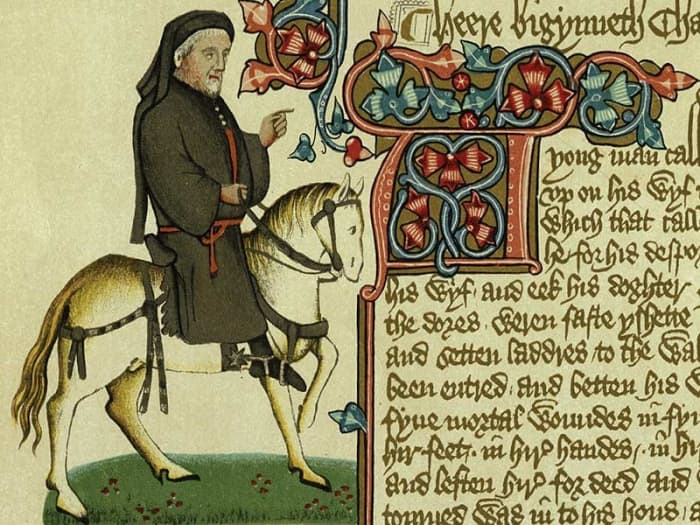 heere bigynneth Cha
A yong man call
vp on his wyf
which that call
he for his despor
his wyf / and eek his doghter
the dores / weren faste yshette
and setten laddres / to the wal
been entred / and betten his w
fyue mortal woundes in
hir feet / in hir handes / in hi
and leften hir for deed and
tourned was in to his hous /